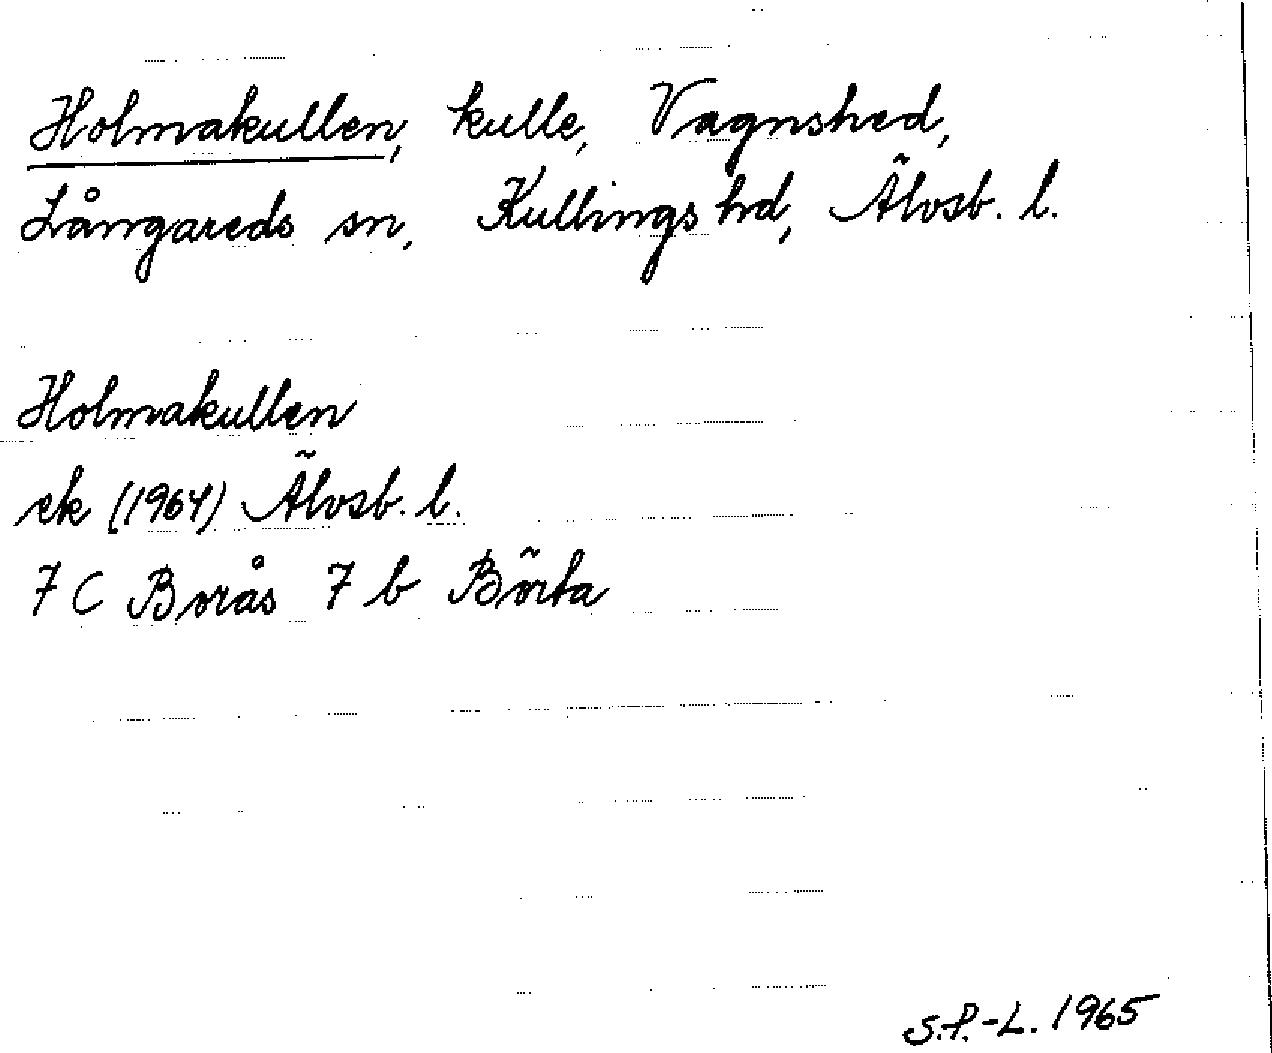 Holmakullen, kulle, Vagnshed,
Långareds sn, Kullings hd, Älvsb. l.
Holmakullen
ek (1964) Älvsb. l.
7 C Borås 7 b Börta
S.P.-L. 1965